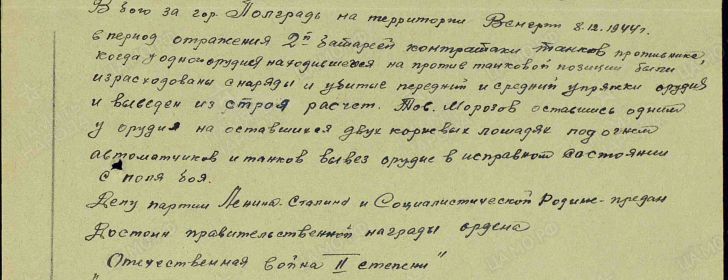 В бою за гор. Полгардь на территории Венгрии 8.12.1944г.
в период отражения 2й батареей контратаки танков противника,
когда у одного орудия находившееся на против танковой позиции были
израсходованы снаряды и убитые передний и средний упряжки орудия
и выведен из строя расчет. Тов. Морозов оставшись одним
у орудия на оставшихся двух корневых лошадях под огнем
автоматчиков и танков вывез орудие в исправном состоянии
с поля боя.
Делу партии Ленина-Сталина и Социалистической Родине-предан
Достоин правительственной награды ордена
"Отечественная война II степени"